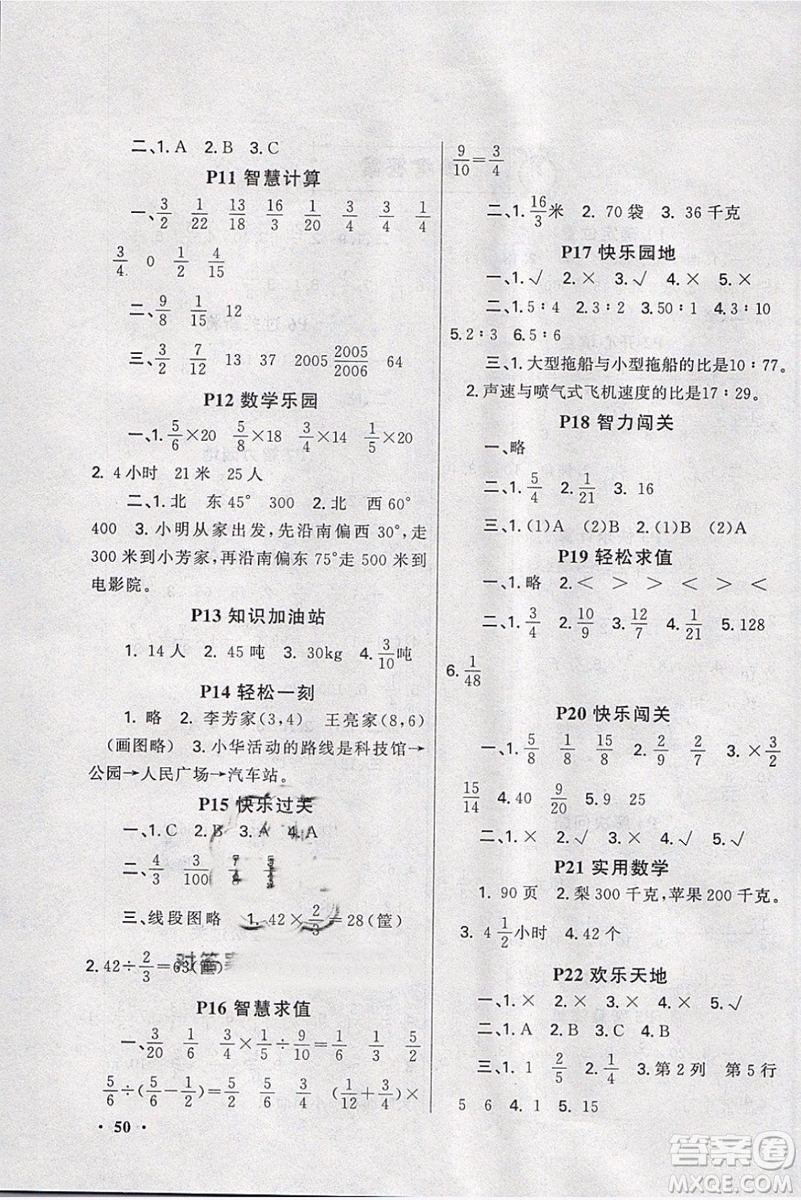 二、1. A 2. B 3. C
P11 智慧计算
一、3/2 1/22 13/18 16/13 1/20 3/4 3/4 4/11
3/4 0 1/2 4/15
二、9/8 1/15 12
三、3/2 7/12 13 37 2005 2005/2006 64
P12 数学乐园
一、1. 5/6×20 5/6×20×3/4 1/5×20
2. 4 小时 21 米 25 人
二、1. 北 东 45° 300 2. 北 西 60°
400 3. 小明从家出发，先沿南偏西 30°，走
300 米到小芳家，再沿南偏东 75°走 500 米到
电影院。
P13 知识加油站
1. 14 人 2. 45 吨 3. 30kg 4. 3/10吨
P14 轻松一刻
1. 略 2. 李芳家(3,4) 王亮家(8,6)
(画图略) 3. 小华活动的路线是科技馆→
公园→人民广场→汽车站。
P15 快乐过关
一、1. C 2. B 3. A 4. A
二、4/3 3/100
三、线段图略 1. 42×2/3=28(筐)
2. 42÷2/3=63(筐)
P16 智慧求值
一、3/20 6 1/4 3/4×1/5÷9/10=1/6 1/4 5/2
5/6÷(5/6-1/6)=5/4 3/4 1/12÷(1/3+1/6)×
9/10=3/4
二、1. 16/3米 2. 70 袋 3. 36 千克
P17 快乐园地
一、1. √ 2. × 3. √ 4. × 5. ×
二、1. 5∶4 2. 3∶2 3. 50∶1 4. 3∶10
5. 2∶3 6. 5∶6
三、1. 大型拖船与小型拖船的比是10∶77。
2. 声速与喷气式飞机速度的比是17∶29。
P18 智力闯关
一、略
二、1. 5/4 2. 1/21 3. 16
三、1. (1)A (2)C 2. (1)B (2)A
P19 轻松求值
一、1. 略 2. < > < > <
二、1. 3/4 2. 10/9 3. 12/7 4. 1/21 5. 128
6. 1/48
P20 快乐闯关
一、1. 5/8 1/8 15/8 2. 2/9 2/7 3. ×3/2
15/14 4. 40 9/20 5. 9 25
二、1. × 2. √ 3. × 4. √ 5. √
P21 实用数学
1. 90 页 2. 梨300 千克，苹果200 千克。
3. 4 1/2小时 4. 42 个
P22 欢乐天地
一、1. √ 2. × 3. × 4. × 5. √
二、1. A 2. B 3. C 4. C
三、1. 1 2/5 2. 1/4 3. 第 2 列 第 5 行
5 6 4. 8 5. 15
· 50 ·
答案圈
MXQE.COM